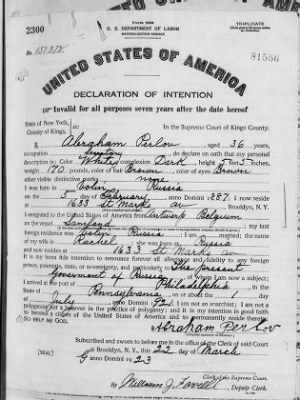 Form 2203
U. S. DEPARTMENT OF LABOR
NATURALIZATION SERVICE
TRIPLICATE
2300
No. 151372
81556
UNITED STATES OF AMERICA
DECLARATION OF INTENTION
Invalid for all purposes seven years after the date hereof
State of New York,
County of Kings,
In the Supreme Court of Kings County.
I, Abraham Perlov, aged 36 years,
occupation, do declare on oath that my personal
description is: Color White, complexion Dark, height 5 feet 5 inches,
weight 170 pounds, color of hair Brown, color of eyes Brown
other visible distinctive marks none
I was born in Russia
on the 5 day of February, anno Domini 1887; I now reside
at 1633 St Marks av, Brooklyn, N. Y.
I emigrated to the United States of America from Antwerp Belgium
on the vessel; my last
foreign residence was Russia; I am married; the name
of my wife is Rachel; she was born at Russia
and now resides at 1633 St Marks av
It is my bona fide intention to renounce forever all allegiance and fidelity to any foreign
prince, potentate, state, or sovereignty, and particularly to The present
government of Russia, of whom I am now a subject;
I arrived at the port of Philadelphia, in the
State of Pennsylvania, on or about the day
of July, anno Domini 1921; I am not an anarchist; I am not a
polygamist nor a believer in the practice of polygamy; and it is my intention in good faith
to become a citizen of the United States of America and to permanently reside therein:
SO HELP ME GOD.
Abraham Perlov
Subscribed and sworn to before me in the office of the Clerk of said Court
at Brooklyn, N. Y., this 22 day of March
anno Domini 1923
[SEAL]
Clerk of the Supreme Court.
By, Deputy Clerk.